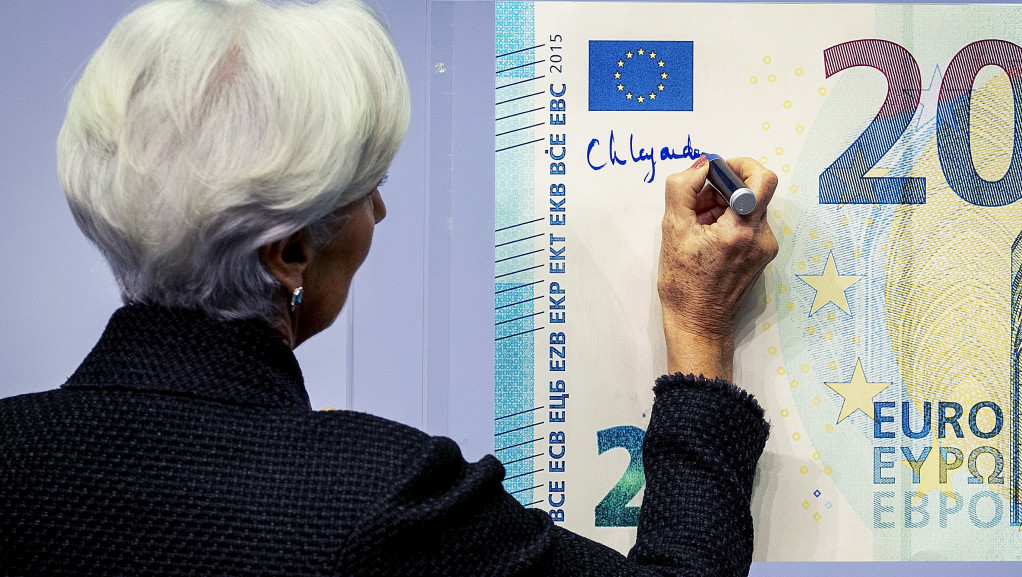 BCE ECB ЕЦБ EZB EKP EKT EKB BĊE EBC 2015
Ch Lagarde
20
2
EURO
ΕΥΡΩ
ЕВРО